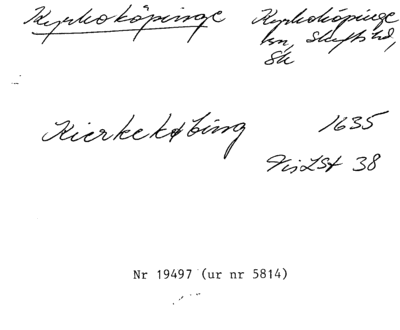 Kyrkoköpinge Kyrkoköpinge
sn, Skytts hd,
Sk
Kierkekøbing 1635
VisLSt 38
Nr 19497 (ur nr 5814)